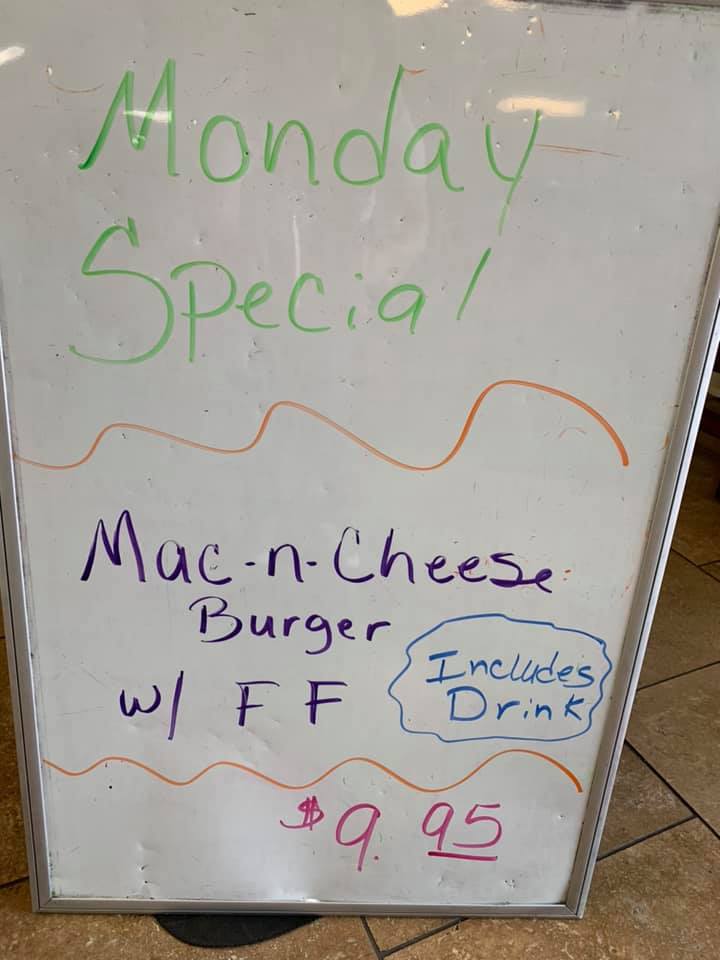 Monday
Special
Mac-n-Cheese
Burger
w/ FF
Includes
Drink
$9.95